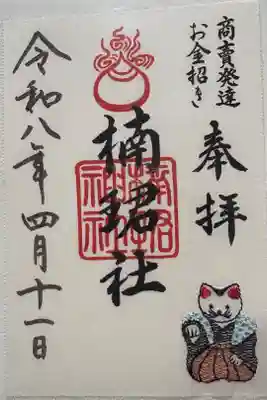 商賣発達
お金招き
奉拝
楠珺社
令和八年四月十一日